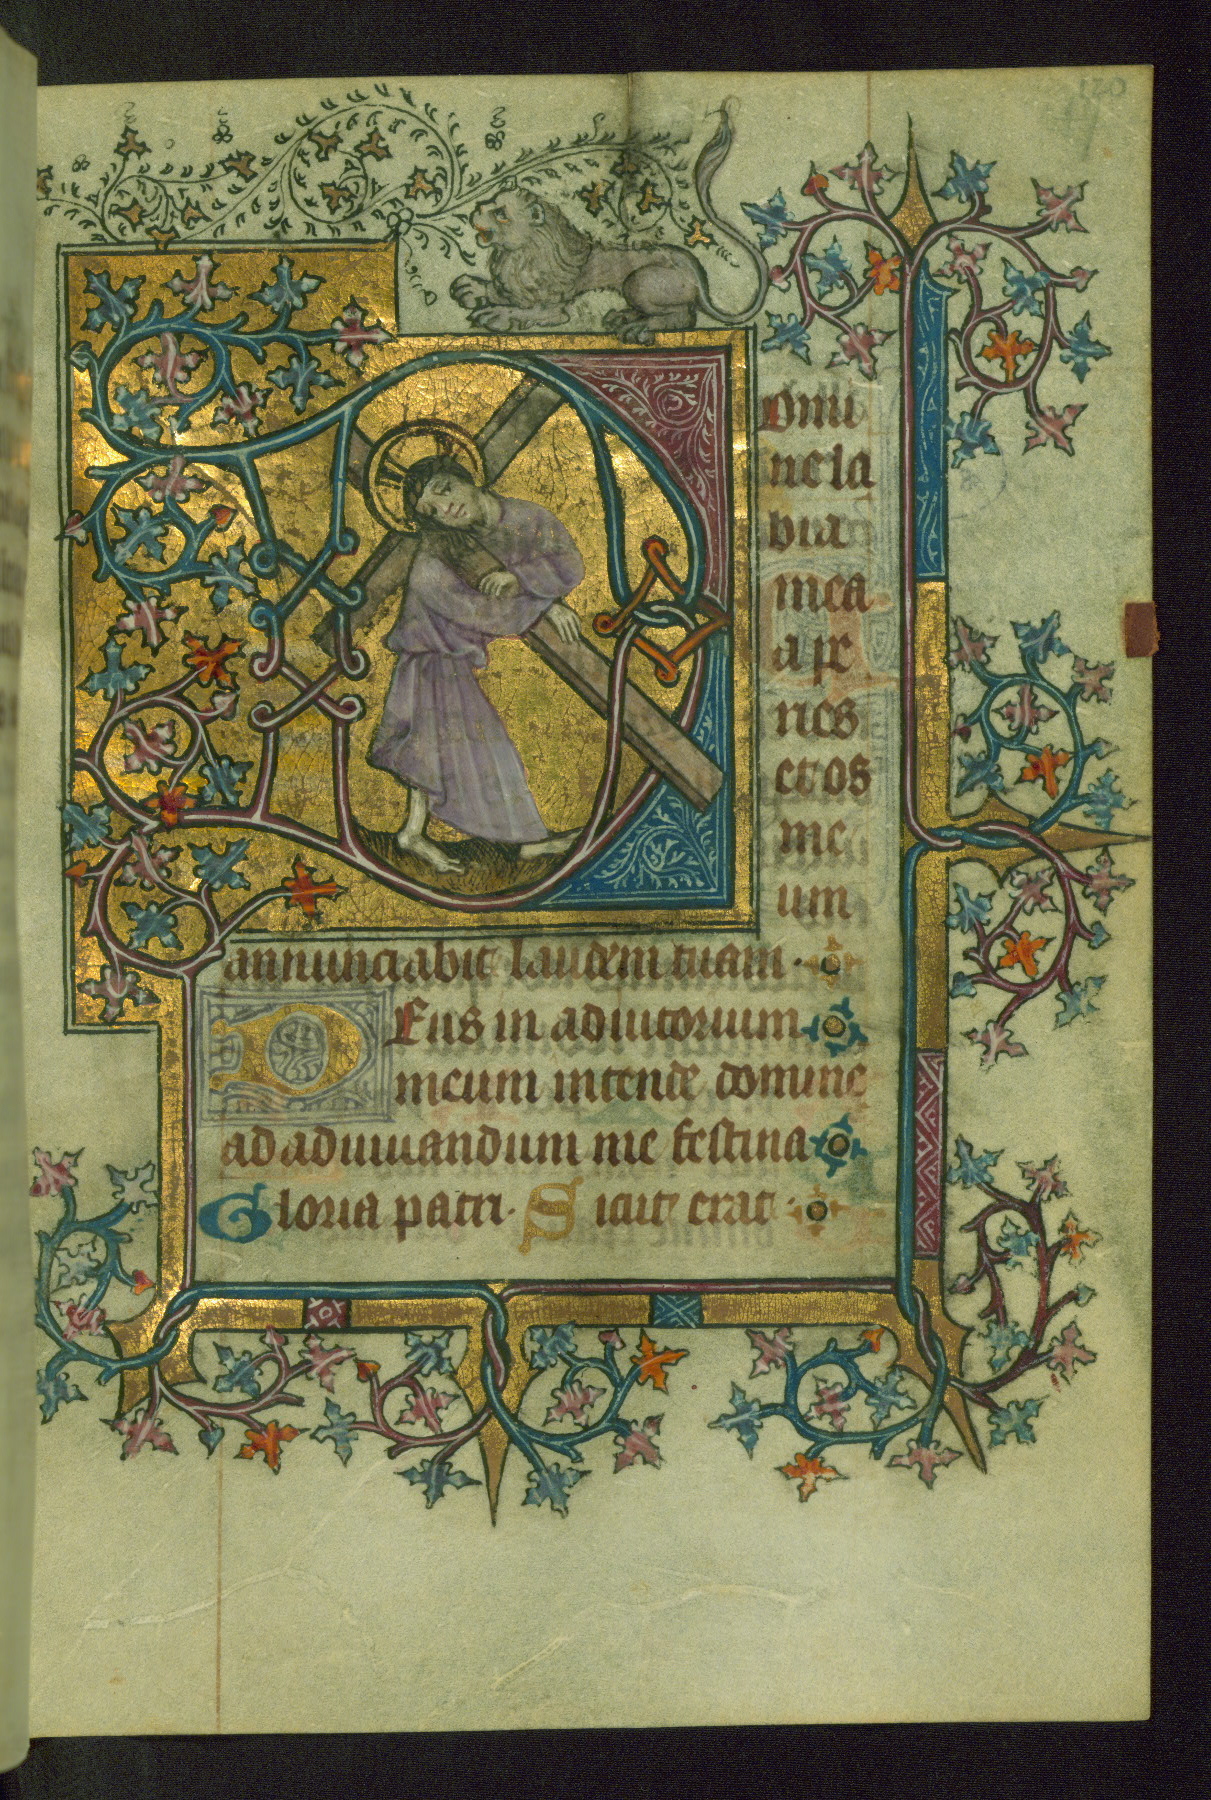 130
omi
ne la
bia
mea
ape
ries
et os
me
um
annunciabit laudem tuam ·
Deus in adiutorium
meum intende domine
ad adiuuandum me festina
Gloria patri · Sicut erat ·